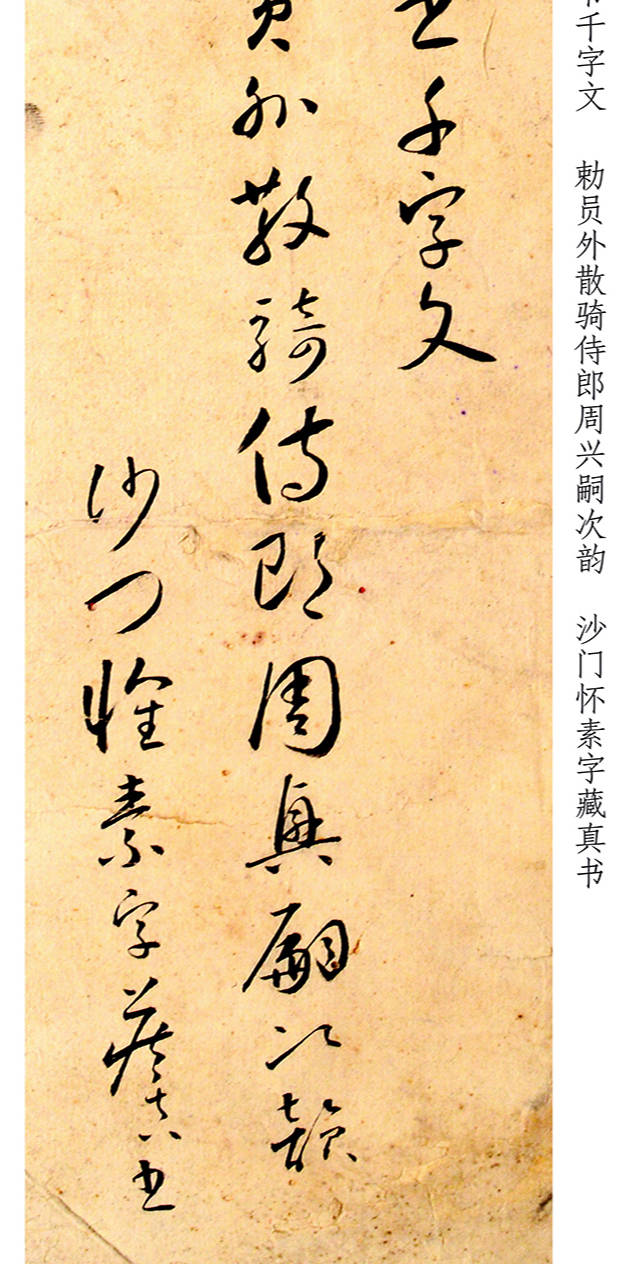 千字文 勅员外散骑侍郎周兴嗣次韵 沙门怀素字藏真书
千字文
員外散騎侍郎周興嗣次韻
沙門懷素字藏真書